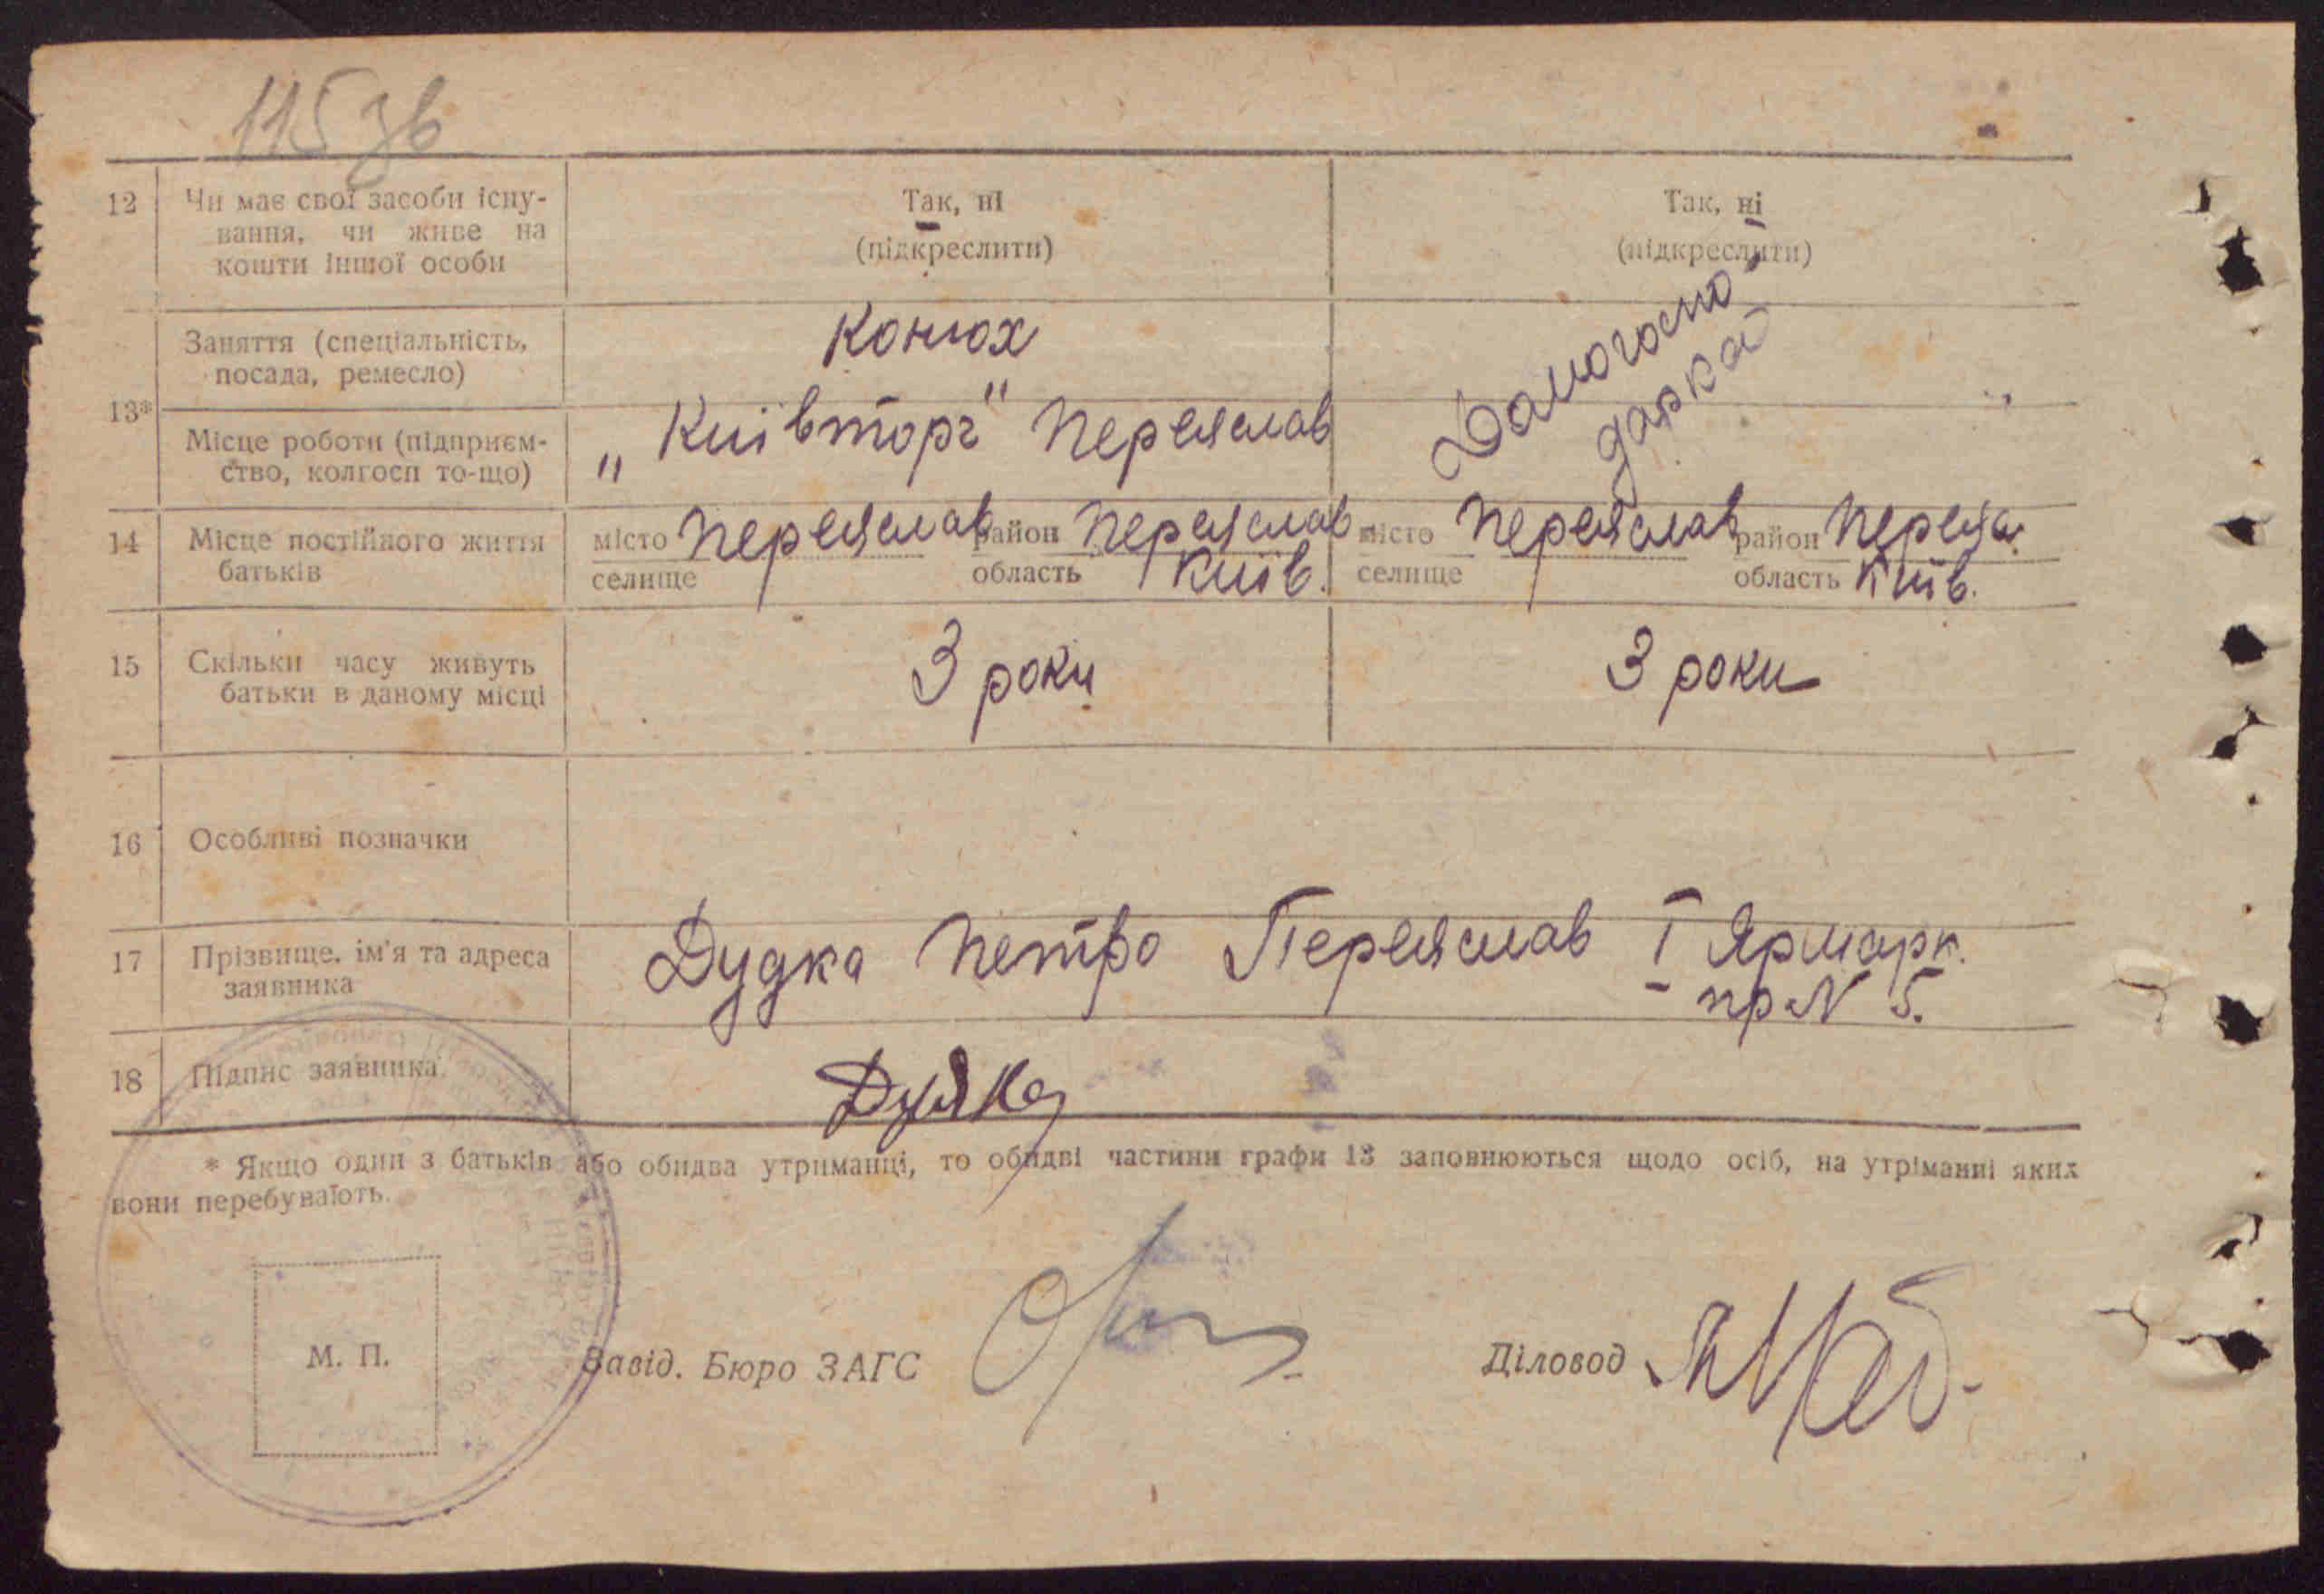 115 зв
12 Чи має свої засоби існу- Так, ні Так, ні
вання, чи живе на (підкреслити) (підкреслити)
кошти іншої особи
Заняття (спеціальність, Конюх Домогоспо-
посада, ремесло) дарка
13*
Місце роботи (підприєм- „Київторг" Переяслав
ство, колгосп то-що)
14 Місце постійного життя місто Переяслав район Переяслав місто Переяслав район Переяс.
батьків селище область Київ. селище область Київ.
15 Скільки часу живуть 3 роки 3 роки
батьки в даному місці
16 Особливі позначки
17 Прізвище, ім'я та адреса Дудка Петро Переяслав I Ярмарк.
заявника пр N 5.
18 Підпис заявника Дудка
* Якщо один з батьків або обидва утриманці, то обидві частини графи 13 заповнюються щодо осіб, на утріманні яких
вони перебувають.
М. П. Завід. Бюро ЗАГС Діловод